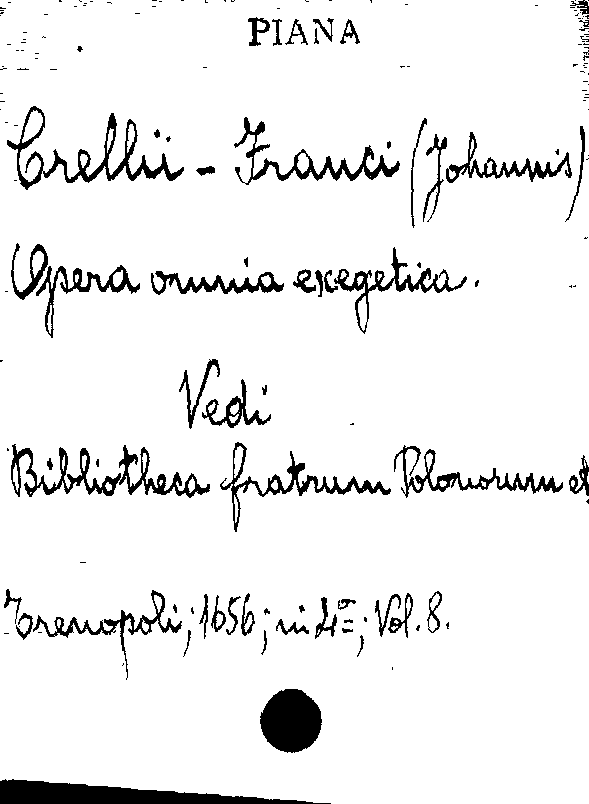 PIANA
Crellii - Franci (Johannis)
Opera omnia exegetica.
Vedi
Bibliotheca fratrum Polonorum et
Irenopoli; 1656; in 4º; Vol. 8.